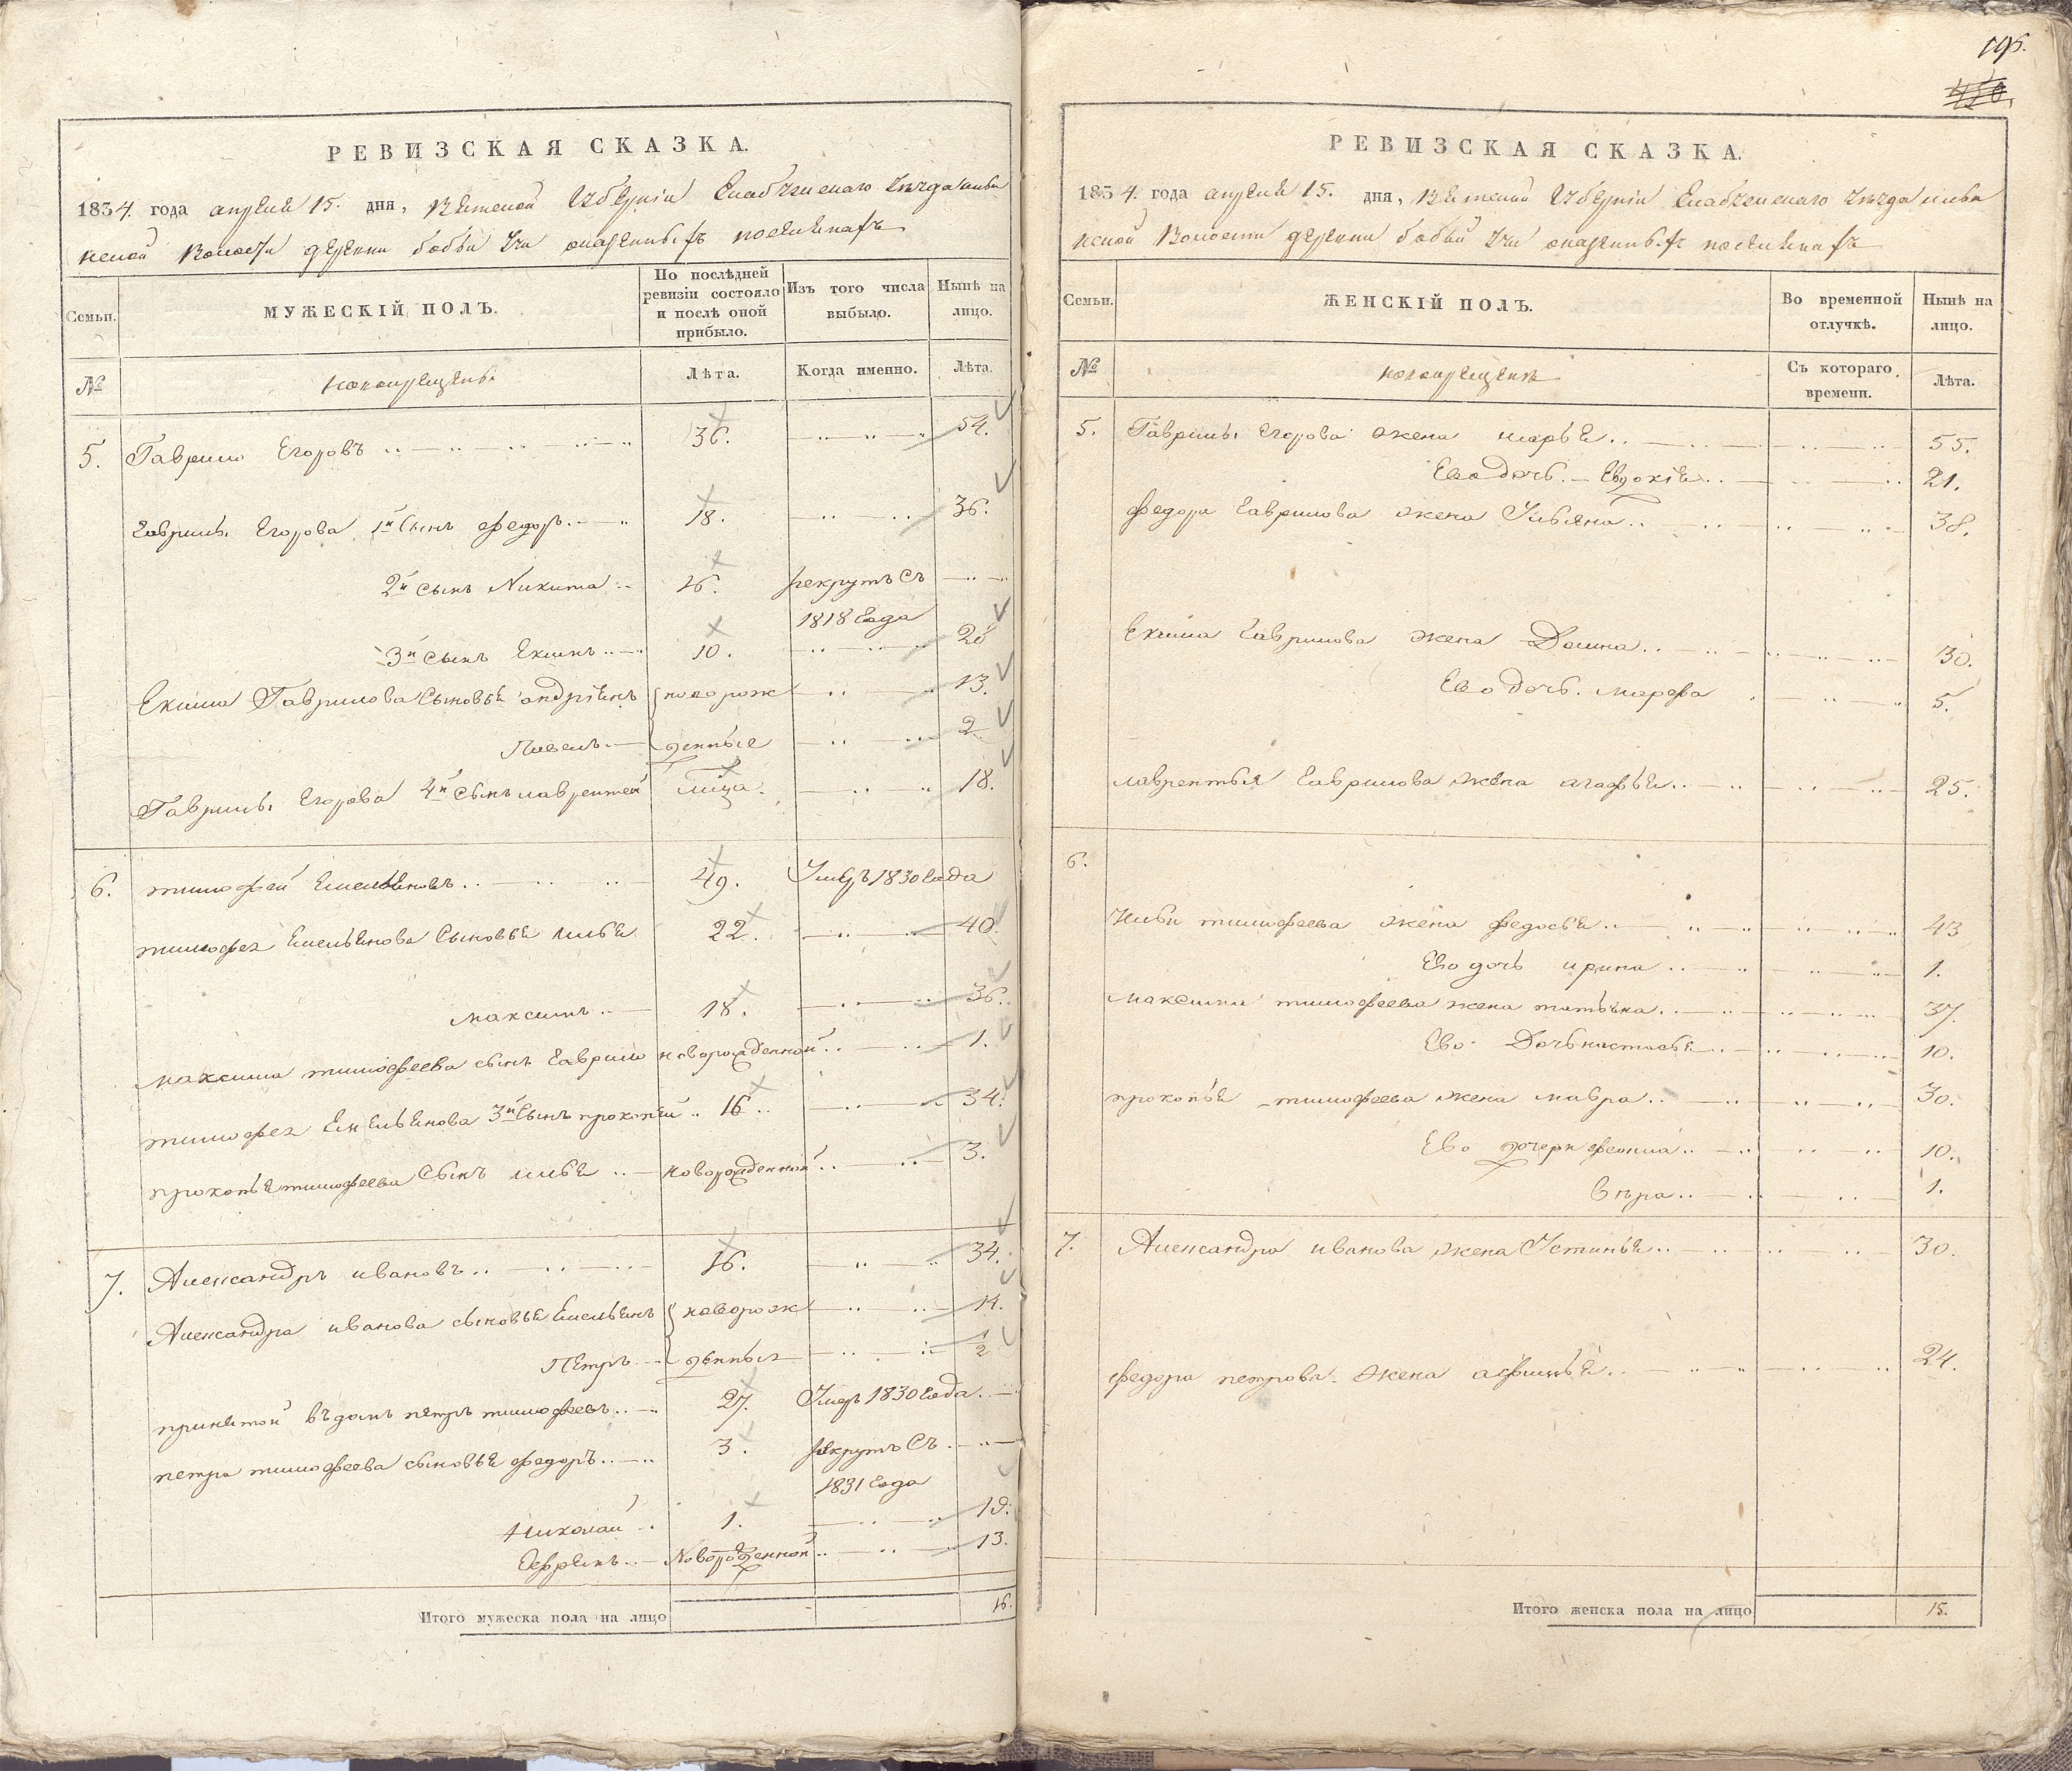 РЕВИЗСКАЯ СКАЗКА.
1834. года апреля 15. дня, Вятской Губерніи Елабужскаго уезда
Волости деревни бобьи Учи
Семьи.
МУЖЕСКІЙ ПОЛЪ.
По послѣдней ревизіи состояло и послѣ оной прибыло.
Изъ того числа выбыло.
Нынѣ на лицо.
№
новокрещены.
Лѣта.
Когда именно.
Лѣта.
5. Гаврило Егоровъ 36. 54.
Гаврилы Егорова 1й Сынъ федоръ 18. 36.
2й сынъ Никита 16. рекрутъ съ
1818 Года
3й сынъ Екимъ 10. 28
Екима Гаврилова Сыновья андріянъ новорож 13.
Павелъ денныя 2
Гаврилы Егорова 4й сынъ лаврентей лица. 18.
6. тимофей Емельяновъ 49. Умеръ 1830 Года
тимофея Емельянова Сыновья илья 22. 40.
максимъ 18. 36.
максима тимофеева сынъ Гаврило новорожденной 1.
тимофея Емельянова 3й Сынъ прокопей 16 34.
прокопья тимофеева Сынъ илья новорожденной 3.
7. Александръ ивановъ 16. 34.
Александра иванова сыновья Емельянъ новорож 14.
Петръ денныя 1/2
принятой въ домъ петръ тимофеевъ 27. Умеръ 1830 Года
петра тимофеева сыновья федоръ 3. рекрутъ Съ
1831 Года
Николай 1. 19.
Ефремъ Новорожденной 13.
Итого мужеска пола на лицо 16.
195.
РЕВИЗСКАЯ СКАЗКА.
1834. года апреля 15. дня, Вятской Губерніи Елабужскаго уезда
Волости деревни бобьи Учи
Семьи.
ЖЕНСКІЙ ПОЛЪ.
Во временной отлучкѣ.
Нынѣ на лицо.
№
новокрещены
Съ котораго времени.
Лѣта.
5. Гаврилы Егорова жена марья 55.
Ево дочь Евдокія 21.
федора Гаврилова жена Ульяна 38.
Екима Гаврилова жена Домна 30.
Ево дочь марфа 5.
лаврентья Гаврилова жена агафья 25.
6.
Ильи тимофеева жена федосья 43
Ево дочь ирина 1.
максима тимофеева жена татьяна 37.
Ево Дочь настасья 10.
прокопья тимофеева жена мавра 30.
Ево дочери 10.
вера 1.
7. Александра иванова жена Устинья 30.
федора петрова жена 24.
Итого женска пола на лицо 15.